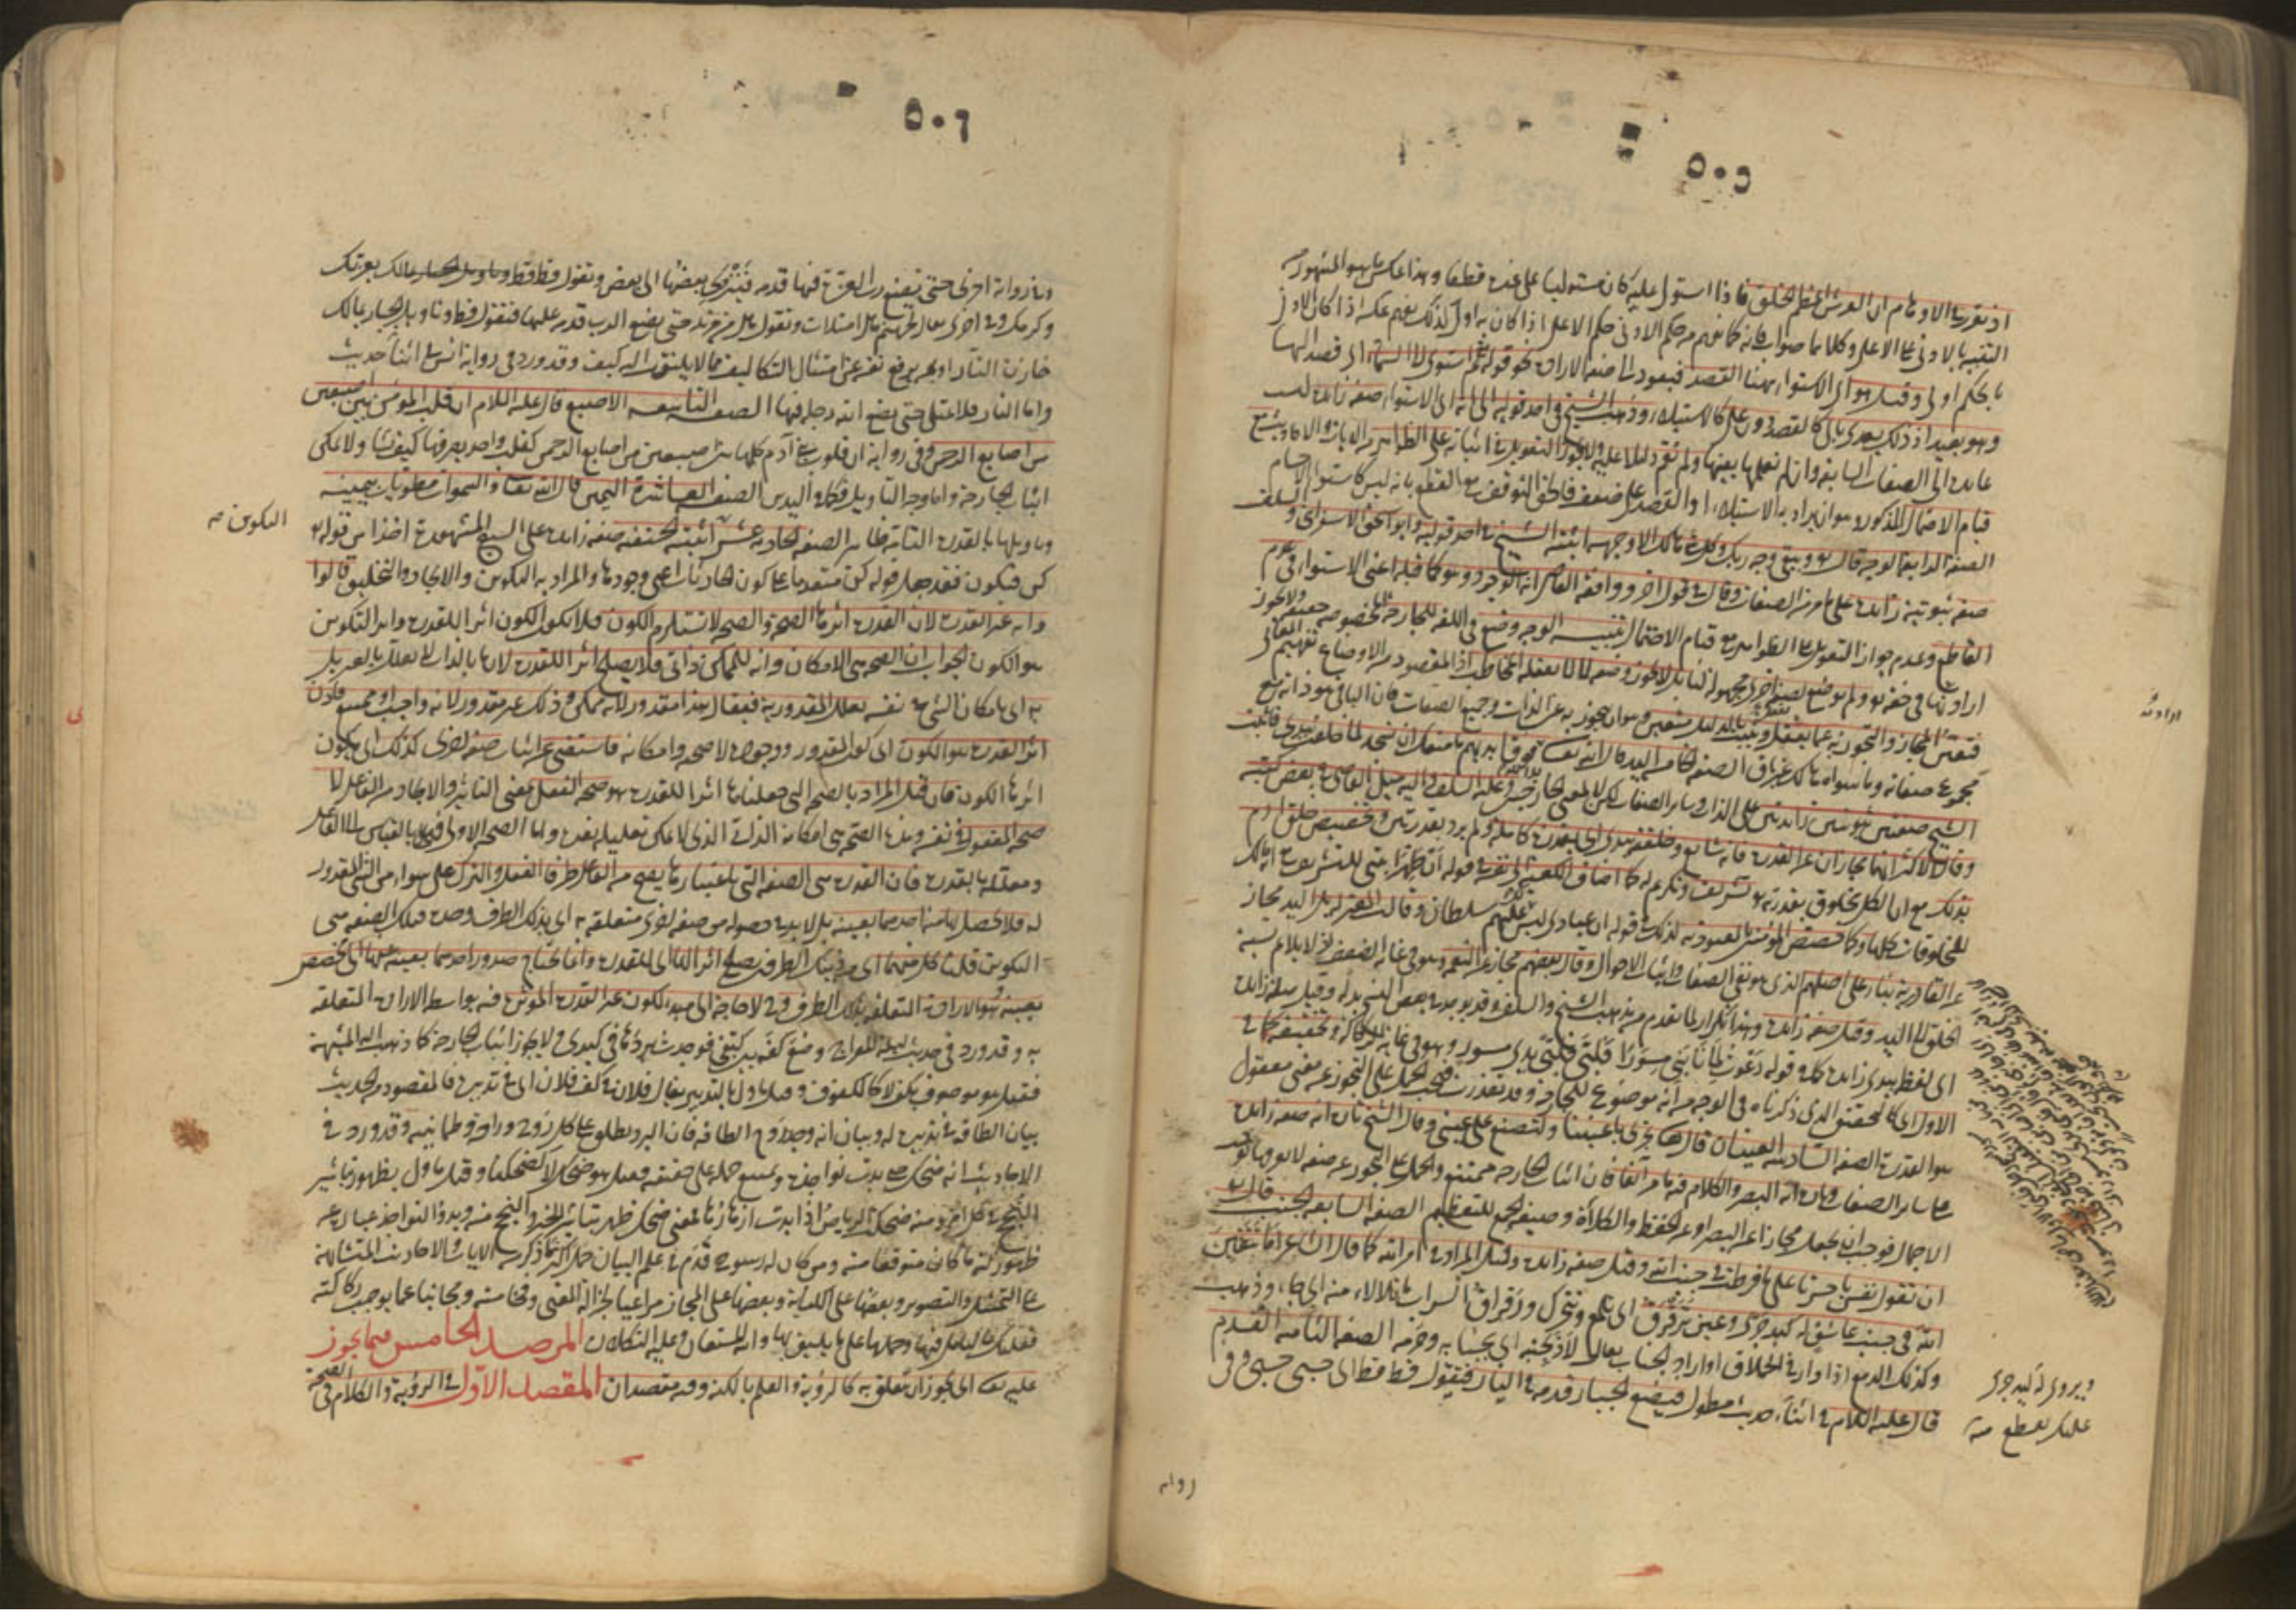 ٥٠٥
اذ تقرر في الاوهام ان العرش اعظم الخلق فاذا استولى عليه كان مستوليا على غيره قطعا وهذا عكس ما هو المشهور من
التنبيه بالادنى على الاعلى وكلاهما صواب فانه كما يفهم من حكم الادنى حكم الاعلى اذا كان به اولى كذلك يفهم عكسه اذا كان الادنى
بالحكم اولى وقيل هو اى الاستواء ههنا القصد فيعود الى صفة الارادة نحو قوله ثم استوى الى السماء اى قصد اليها
وهو بعيد اذ ذلك يعدى بالى كالقصد دون على كالاستيلاء وذهب الشيخ فى احد قوليه الى انه اى الاستواء صفة زائدة ليست
عائدة الى الصفات السابقة وان لم نعلمها بعينها ولم يقم دليلا عليه ولا يجوز التعويل فى اثباته على الظواهر من الايات والاحاديث مع
قيام الاحتمال المذكور وهو ان يراد به الاستيلاء او القصد على ضعف فالحق التوقف مع القطع بانه ليس كاستواء الاجسام
الصفة الرابعة الوجه قال تع ويبقى وجه ربك وكل شئ هالك الا وجهه اثبته الشيخ فى احد قوليه وابو اسحق الاسفراينى والسلف
صفة ثبوتية زائدة على ما مر من الصفات وقال فى قول آخر ووافقه القاضى انه الوجود وهو كما قبله اعنى الاستواء فى عدم
القاطع وعدم جواز التعويل على الظواهر مع قيام الاحتمال تنبيه الوجه وضع فى اللغة للجارحة المخصوصة حقيقة ولا يجوز
ارادتها فى حقه تع ولم يوضع لصفة اخرى مجهولة لنا بل لا يجوز وضعه لما لا يعقله المخاطب اذ المقصود من الاوضاع تفهيم المعانى
فتعين المجاز والتجوز به عما يعقل ويثبت بالدليل متعين وهو ان يتجوز به عن الذات وجميع الصفات فان الباقى هو ذاته مع
مجموع صفاته وما سواه هالك غير باق الصفة الخامسة اليد قال الله تعالى يد الله فوق ايديهم ما منعك ان تسجد لما خلقت بيدى فاثبت
الشيخ صفتين ثبوتيتين زائدتين على الذات وسائر الصفات لكن لا بمعنى الجارحتين وعليه السلف واليه ميل القاضى فى بعض كتبه
وقال الاكثر انهما مجازان عن القدرة فانه شايع وخلقته بيدى اى بقدرة كاملة ولم يرد بقدرتين وتخصيص خلق آدم
بذلك مع ان الكل مخلوق بقدرته تع تشريف وتكريم له كما اضاف الكعبة الى نفسه فى قوله ان طهرا بيتى للتشريف مع انه مالك
للمخلوقات كلها وكما خصص المؤمنين بالعبودية لذلك فى قوله ان عبادى ليس لك عليهم سلطان وقالت المعتزلة بل اليد مجاز
عن القادرية بناء على اصلهم الذى هو نفى الصفات واثبات الاحوال وقال بعضهم مجاز عن النعمة وهو فى غاية الضعف اذ لا يلايم نسبة
الخلق الى اليد وقيل صفة زائدة وهذا تكرار لما تقدم من مذهب الشيخ والسلف وقد يوجد فى بعض النسخ بدله وقيل صلة زائدة
اى لفظ بيدى زائدة كما فى قوله دعوت لما نابنى مسورا فلبى فلبى يدى مسور وهو فى غاية الركاكة وتحقيقه كما فى
الاول اى كالتحقيق الذى ذكرناه فى الوجه من انه موضوع للجارحة وقد تعذرت فيجب الحمل على التجوز عن معنى معقول
هو القدرة الصفة السادسة العينان قال تعالى تجرى باعيننا ولتصنع على عينى وقال الشيخ تارة انه صفة زائدة
على سائر الصفات وتارة انه البصر والكلام فيه ما مر آنفا فان اثبات الجارحة ممتنع والحمل على التجوز عن صفة لا نعرفها يوجب
الاجمال فوجب ان يجعل مجازا عن البصر او عن الحفظ والكلاءة وصيغة الجمع للتعظيم الصفة السابعة الجنب قال تع
ان تقول نفس يا حسرتا على ما فرطت فى جنب الله وقيل صفة زائدة وقيل المراد فى امر الله كما قال الشاعر اما تتقين
الله فى جنب عاشق له كبد حرى وعين ترقرق اى تلمع وتتحرك ورقراق السراب ما تلالأ منه اى جاء وذهب
وكذلك الدمع اذا دار فى الحملاق او اراد الجناب يقال لاذ بجنبه اى بجنابه وحرمه الصفة الثامنة القدم
قال عليه السلام فى اثناء حديث مطول فيضع الجبار قدمه فى النار فتقول قط قط اى حسبى حسبى وفى
ارادته
ويروى له كبد حرى
عليك تقطع منه
رواية
٥٠٦
رواية اخرى حتى يضع رب العزة فيها قدمه فينزوى بعضها الى بعض وتقول قط قط بعزتك
وكرمك وفى اخرى يقال لجهنم هل امتلات وتقول هل من مزيد حتى يضع الرب قدمه عليها فتقول قط قط وتاويل الجبار بمالك
خازن النار او بمن يرفع نفسه عن امتثال التكاليف مما لا يلتفت اليه كيف وقد ورد فى رواية انس فى اثناء حديث
واما النار فلا تمتلئ حتى يضع الله رجله فيها الصفة التاسعة الاصبع قال عليه السلام ان قلب المؤمن بين اصبعين
من اصابع الرحمن وفى رواية ان قلوب بنى آدم كلها بين اصبعين من اصابع الرحمن كقلب واحد يصرفها كيف يشاء ولا يمكن
اثبات الجارحة واما وجه التاويل فكما فى اليدين الصفة العاشرة اليمين قال الله تعالى والسموات مطويات بيمينه
وتاويلها بالقدرة التامة ظاهر الصفة الحادية عشر اثبته الحنفية صفة زائدة على السبع المشهورة اخذا من قوله تع
كن فيكون فقد جعل قوله كن متقدما على كون الحادثات اعنى وجودها والمراد به التكوين والايجاد والتخليق قالوا
وانه غير القدرة لان القدرة اثرها الصحة والصحة لا تستلزم الكون فلا يكون الكون اثرا للقدرة واثر التكوين
هو الكون الجواب ان الصحة هى الامكان وانه للممكن ذاتى فلا يصلح اثرا للقدرة لان ما بالذات لا يعلل بالغير بل
به اى بامكان الشئ فى نفسه يعلل المقدورية فيقال هذا مقدور لانه ممكن وذلك غير مقدور لانه واجب او ممتنع فاذن
اثر القدرة هو الكون اى كون المقدور ووجوده لا صحته وامكانه فاستغنى عن اثبات صفة اخرى كذلك اى يكون
اثرها الكون فان قيل المراد بالصحة التى جعلناها اثرا للقدرة هو صحة الفعل بمعنى التاثير والايجاد من الفاعل لا
صحة المفعول فى نفسه وهذه الصحة هى امكانه الذاتى الذى لا يمكن تعليله بغيره واما الصحة الاولى فهى بالقياس الى الفاعل
ومعللة بالقدرة فان القدرة هى الصفة التى باعتبارها يصح من الفاعل طرفا الفعل والترك على سواء من الشئ المقدور
له فلا يحصل بها منه احدهما بعينه بل لا بد فى حصوله من صفة اخرى متعلقة به اى بذلك الطرف وحده فتلك الصفة هى
التكوين قلنا كل منهما اى من ذينك الطرفين يصلح اثرا للقدرة وانما يحتاج صدور احدهما بعينه عنها الى مخصص
بعينه هو الارادة المتعلقة بذلك الطرف وح لا حاجة الى مبدء الكون غير القدرة المؤثرة فيه بواسطة الارادة المتعلقة
به وقد ورد فى حديث ليلة المعراج وضع كفه بين كتفى فوجدت بردها فى كبدى ولا يجوز اثبات الجارحة كما ذهب اليه المشبهة
فقيل هو موصوف بكف لا كالكفوف وقيل ماول بالتدبير يقال فلان فى كف فلان اى فى تدبيره فالمقصود من الحديث
بيان الطافه فى تدبيره له وبيان انه وجد روح الطافه فان البرد يطلق على كل روح وراحة وطمانينة وقد ورد فى
الاحاديث انه ضحك حتى بدت نواجذه ويمتنع حمله على حقيقته فقيل هو ضحك لا كضحكنا وقيل ماول بظهور تباشير
النجح فى كل امر ومنه ضحكت الرياض اذا بدت ازهارها فمعنى ضحك ظهر تباشير الخير والنجح منه وبدو النواجذ عبارة عن
ظهور كنه ما كان متوقعا منه ومن كان له رسوخ قدم فى علم البيان حمل اكثر ما ذكر من الايات والاحاديث المتشابهة
على التمثيل والتصوير وبعضها على الكناية وبعضها على المجاز مراعيا لجزالة المعنى وفخامته ومجانبا عما يوجب ركاكته
فعليك بالتامل فيها وحملها على ما يليق بها والله المستعان وعليه التكلان المرصد الخامس فيما يجوز
عليه تعالى اى يجوز ان يتعلق به كالرؤية والعلم بالكنه وفيه مقصدان المقصد الاول فى الرؤية والكلام فى الصحة
التكوين صح